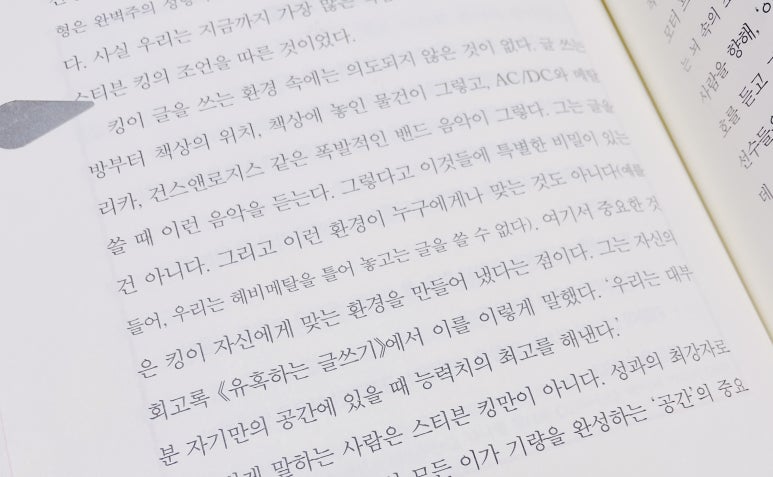 형은 완벽주의 성향
다. 사실 우리는 지금까지 가장 많은
스티븐 킹의 조언을 따른 것이었다.
킹이 글을 쓰는 환경 속에는 의도되지 않은 것이 없다. 글 쓰는
방부터 책상의 위치, 책상에 놓인 물건이 그렇고, AC/DC와 메탈
리카, 건스앤로지스 같은 폭발적인 밴드 음악이 그렇다. 그는 글을
쓸 때 이런 음악을 듣는다. 그렇다고 이것들에 특별한 비밀이 있는
건 아니다. 그리고 이런 환경이 누구에게나 맞는 것도 아니다(예를
들어, 우리는 헤비메탈을 틀어 놓고는 글을 쓸 수 없다). 여기서 중요한 것
은 킹이 자신에게 맞는 환경을 만들어 냈다는 점이다. 그는 자신의
회고록 《유혹하는 글쓰기》에서 이를 이렇게 말했다. ‘우리는 대부
분 자기만의 공간에 있을 때 능력치의 최고를 해낸다.’
말하는 사람은 스티븐 킹만이 아니다. 성과의 최강자로
모든 이가 기량을 완성하는 ‘공간’의 중요
모터
는 뇌 속의
사람을 향해, ‘
호를 듣고
선수들
데